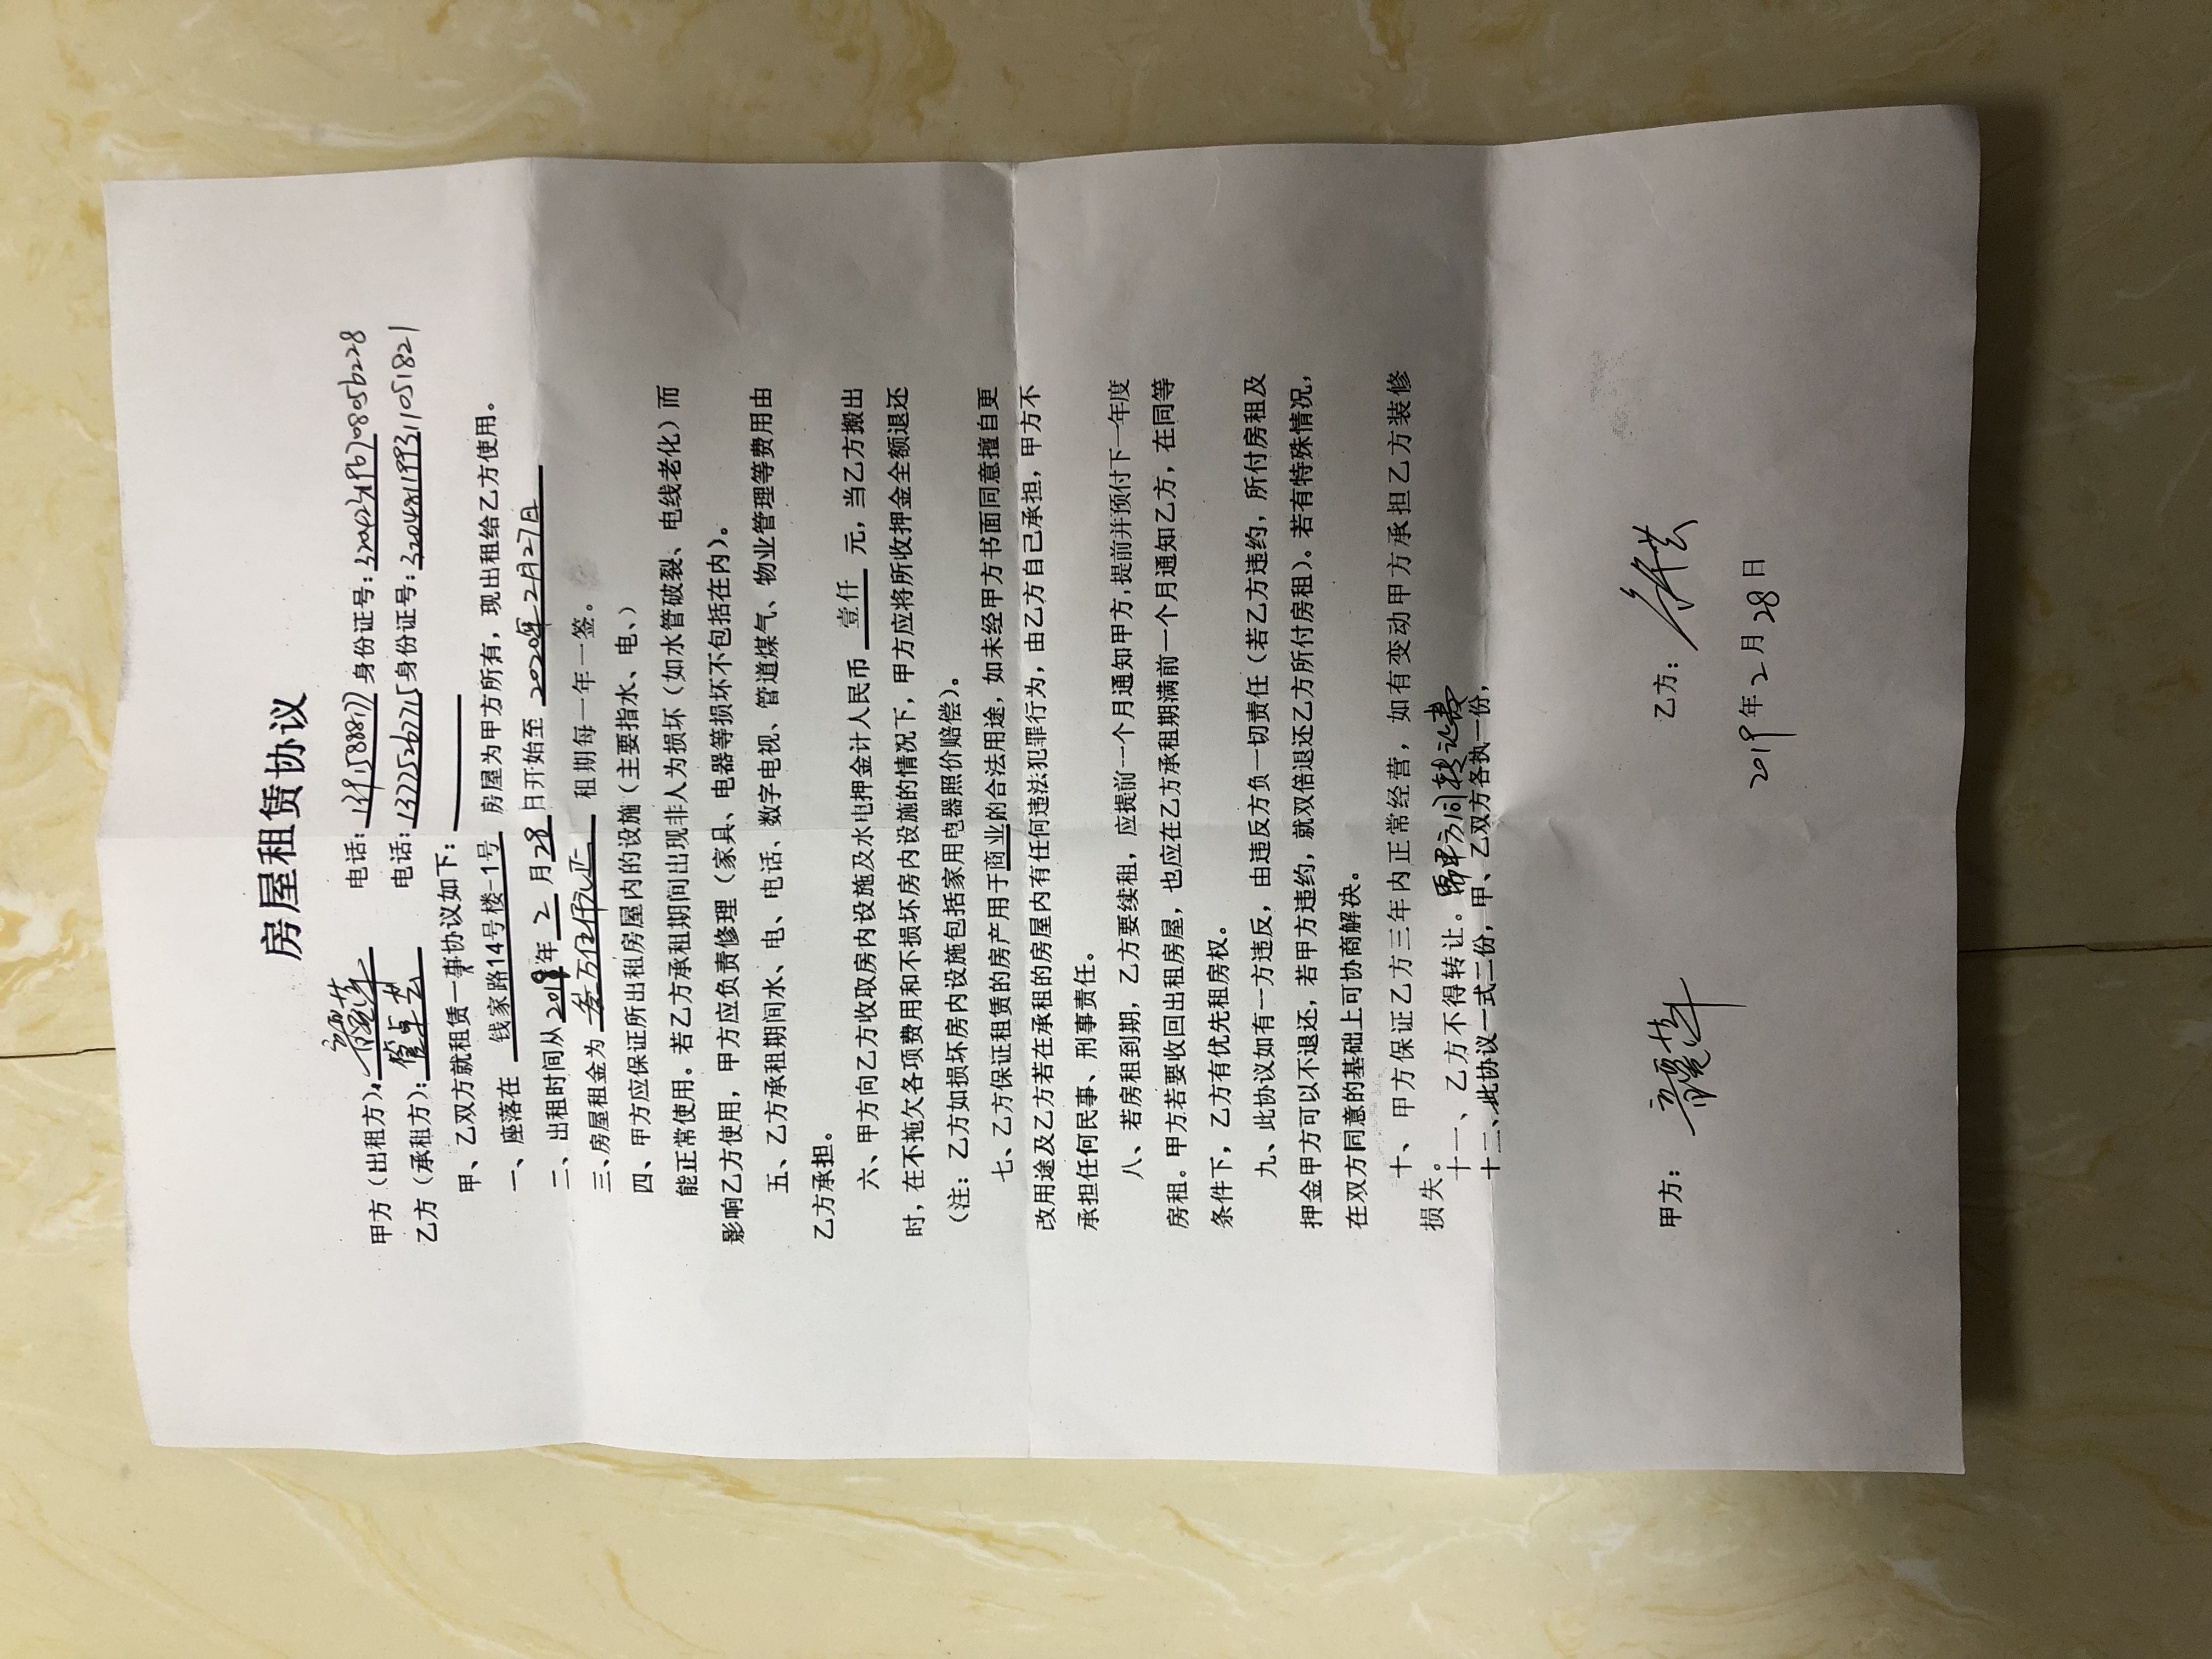 房屋租赁协议
甲方（出租方）： 电话：13915888177 身份证号：320423196708056228
乙方（承租方）：管卓芸 电话：13775267715 身份证号：320481199311051821
甲、乙双方就租赁一事协议如下：
一、座落在 钱家路14号楼-1号 房屋为甲方所有，现出租给乙方使用。
二、出租时间从2019年2月28日开始至 2020年2月27日
三、房屋租金为 叁万伍仟元正 租期每一年一签。
四、甲方应保证所出租房屋内的设施（主要指水、电、）
能正常使用。若乙方承租期间出现非人为损坏（如水管破裂、电线老化）而
影响乙方使用，甲方应负责修理（家具、电器等损坏不包括在内）。
五、乙方承租期间水、电、电话、数字电视、管道煤气、物业管理等费用由
乙方承担。
六、甲方向乙方收取房内设施及水电押金计人民币 壹仟 元，当乙方搬出
时，在不拖欠各项费用和不损坏房内设施的情况下，甲方应将所收押金全额退还
（注：乙方如损坏房内设施包括家用电器照价赔偿）。
七、乙方保证租赁的房产用于商业的合法用途，如未经甲方书面同意擅自更
改用途及乙方若在承租的房屋内有任何违法犯罪行为，由乙方自己承担，甲方不
承担任何民事、刑事责任。
八、若房租到期，乙方要续租，应提前一个月通知甲方，提前并预付下一年度
房租。甲方若要收回出租房屋，也应在乙方承租期满前一个月通知乙方，在同等
条件下，乙方有优先租房权。
九、此协议如有一方违反，由违反方负一切责任（若乙方违约，所付房租及
押金甲方可以不退还，若甲方违约，就双倍退还乙方所付房租）。若有特殊情况，
在双方同意的基础上可协商解决。
十、甲方保证乙方三年内正常经营，如有变动甲方承担乙方装修
损失。
十一、乙方不得转让。甲方同转让
十二、此协议一式二份，甲、乙双方各执一份，
甲方： 乙方：
2019年2月28日